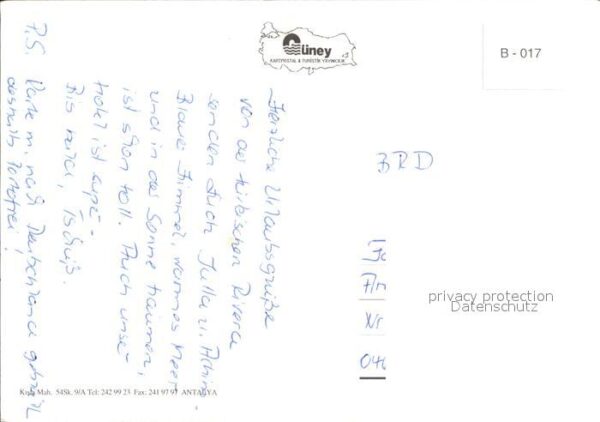 Güney
KARTPOSTAL & TURİSTİK YAYINCILIK
B - 017
Herzliche Urlaubsgrüße
von der türkischen Riviera
senden Euch Julla u. Achim
Blauer Himmel, warmes Meer
und in der Sonne träumen,
ist schon toll. Auch unser
Hotel ist super -
Bis bald, Tschüß.
P.S. Karte m. nach Deutschland
deshalb Portofrei!
BRD
privacy protection
Datenschutz
Mah. 54Sk. 9/A Tel: 242 99 23 Fax: 241 97 97 ANTALYA